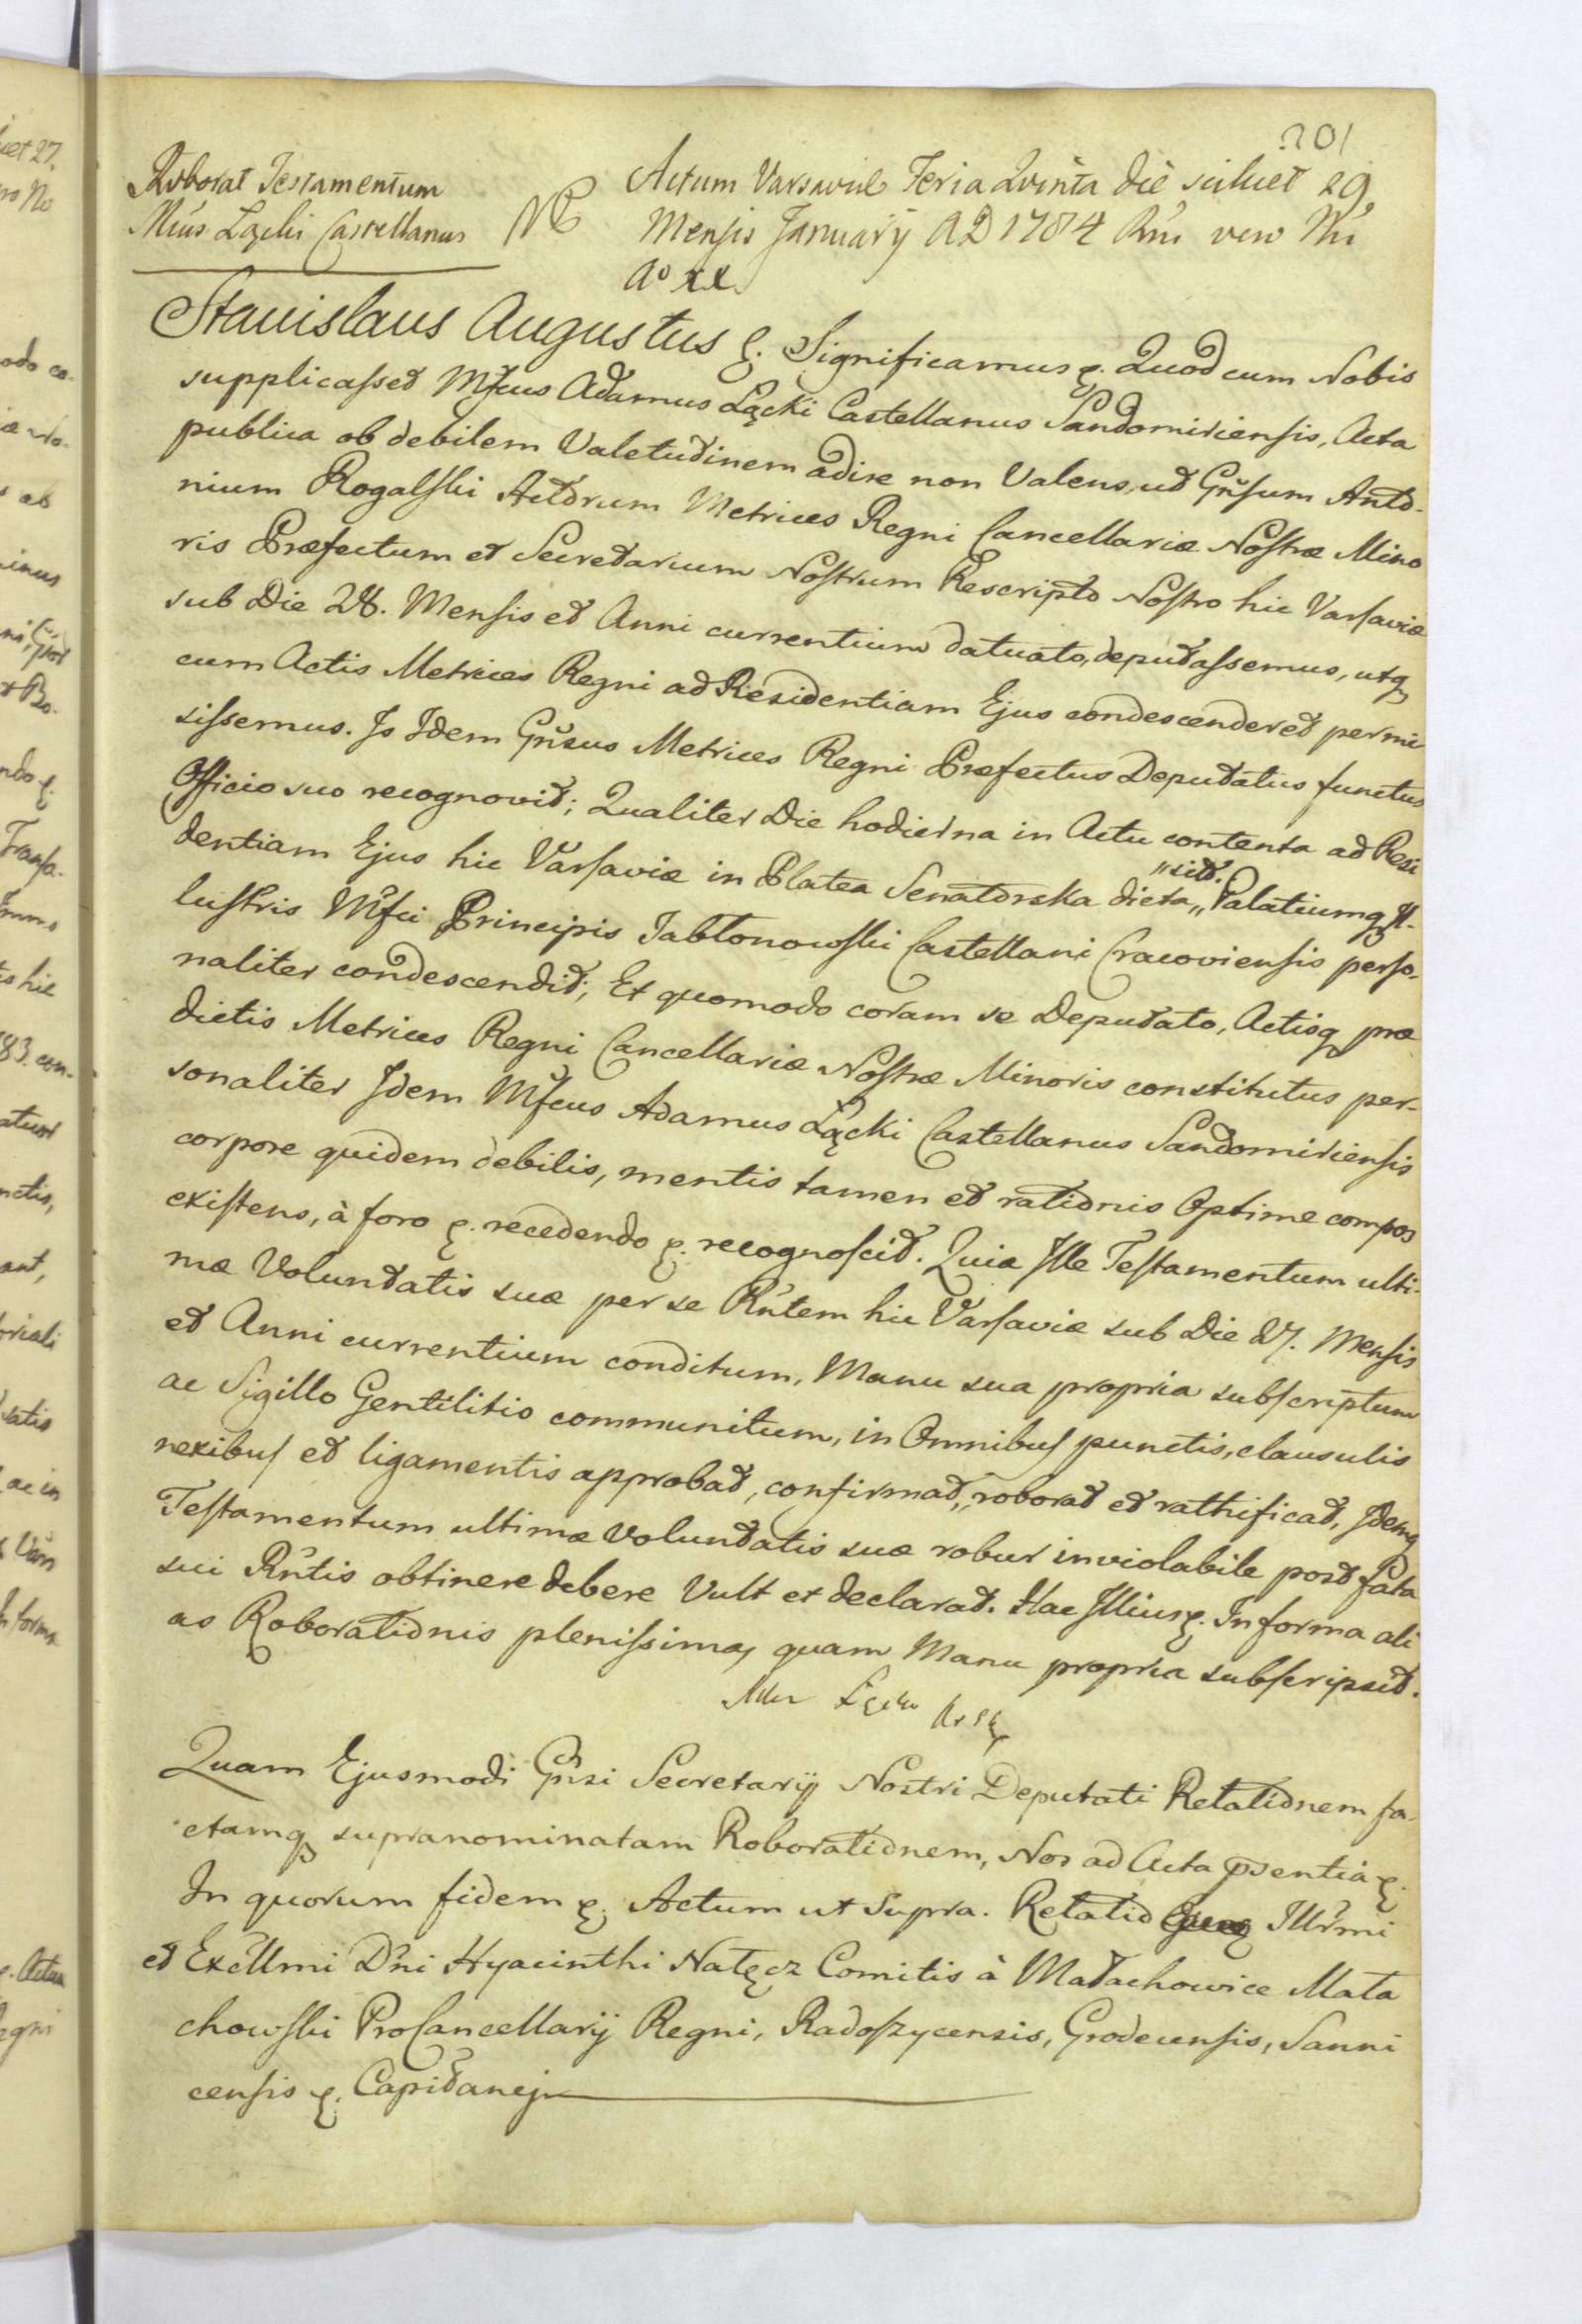 201
Roborat Testamentum
Mcus Łącki Castellanus
Actum Varsaviæ Feria Qvinta die scilicet 29
Mensis Januarij AD 1784 Rni vero Nri
Ao XX.
Stanislaus Augustus &. Significamus &. Quod cum Nobis
supplicasset Mfcus Adamus Łącki Castellanus Sandomiriensis, Acta
publica ob debilem Valetudinem adire non Valens, ut Gnsum Anto-
nium Rogalski Actorum Metrices Regni Cancellariæ Nostræ Mino
ris Præfectum et Secretarium Nostrum Rescripto Nostro hic Varsaviæ
sub Die 28. Mensis et Anni currentium datuato, deputassemus, utq
cum Actis Metrices Regni ad Residentiam Ejus condescenderet permi
sissemus. Is Idem Gnsus Metrices Regni Præfectus Deputatus functus
Officio suo recognovit; Qualiter Die hodierna in Actu contenta ad Resi
dentiam Ejus hic Varsaviæ in Platea Senatorska dicta „ Palatiumq Il-
„sit.
lustris Mfci Principis Jabłonowski Castellani Cracoviensis perso-
naliter condescendit; Et quomodo coram se Deputato, Actisq præ
dictis Metrices Regni Cancellariæ Nostræ Minoris constitutus per-
sonaliter Idem Mfcus Adamus Łącki Castellanus Sandomiriensis
corpore quidem debilis, mentis tamen et rationis Optime compos
existens, à foro &. recedendo &. recognoscit. Quia Ille Testamentum ulti-
mæ Voluntatis suæ per se Rntem hic Varsaviæ sub Die 27. Mensis
et Anni currentium conditum, Manu sua propria subscriptum
ac Sigillo Gentilitio communitum, in Omnibus punctis, clausulis
nexibus et ligamentis approbat, confirmat, roborat et rathificat, Idemq
Testamentum ultimæ Voluntatis suæ robur inviolabile post fata
sui Rntis obtinere debere Vult et declarat. Hac Illius &. In forma ali
as Roborationis plenissima, quam Manu propria subscripsit.
Łącki
Quam Ejusmodi Gnsi Secretarij Nostri Deputati Relationem fa-
ctamq supranominatam Roborationem, Nos ad Acta psentia &.
In quorum fidem &. Actum ut Supra. Relatio Illrmi
et Excllmi Dni Hyacinthi Nałęcz Comitis à Małachowice Mała
chowski ProCancellarij Regni, Radoszycensis, Grodecensis, Sanni
censis &. Capitanej